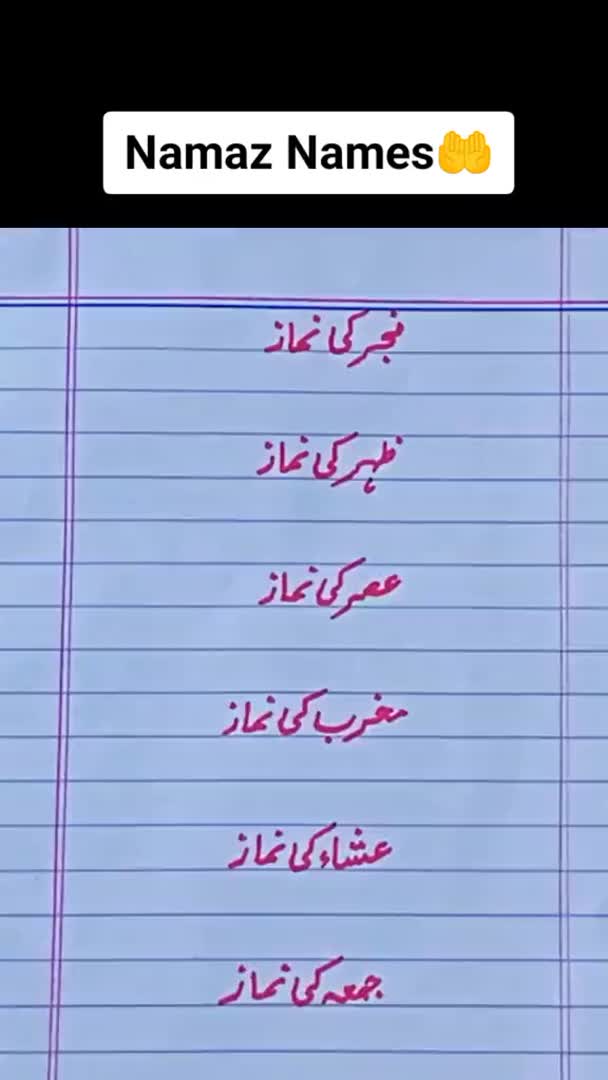 Namaz Names🤲
فجر کی نماز
ظہر کی نماز
عصر کی نماز
مغرب کی نماز
عشاء کی نماز
جمعہ کی نماز